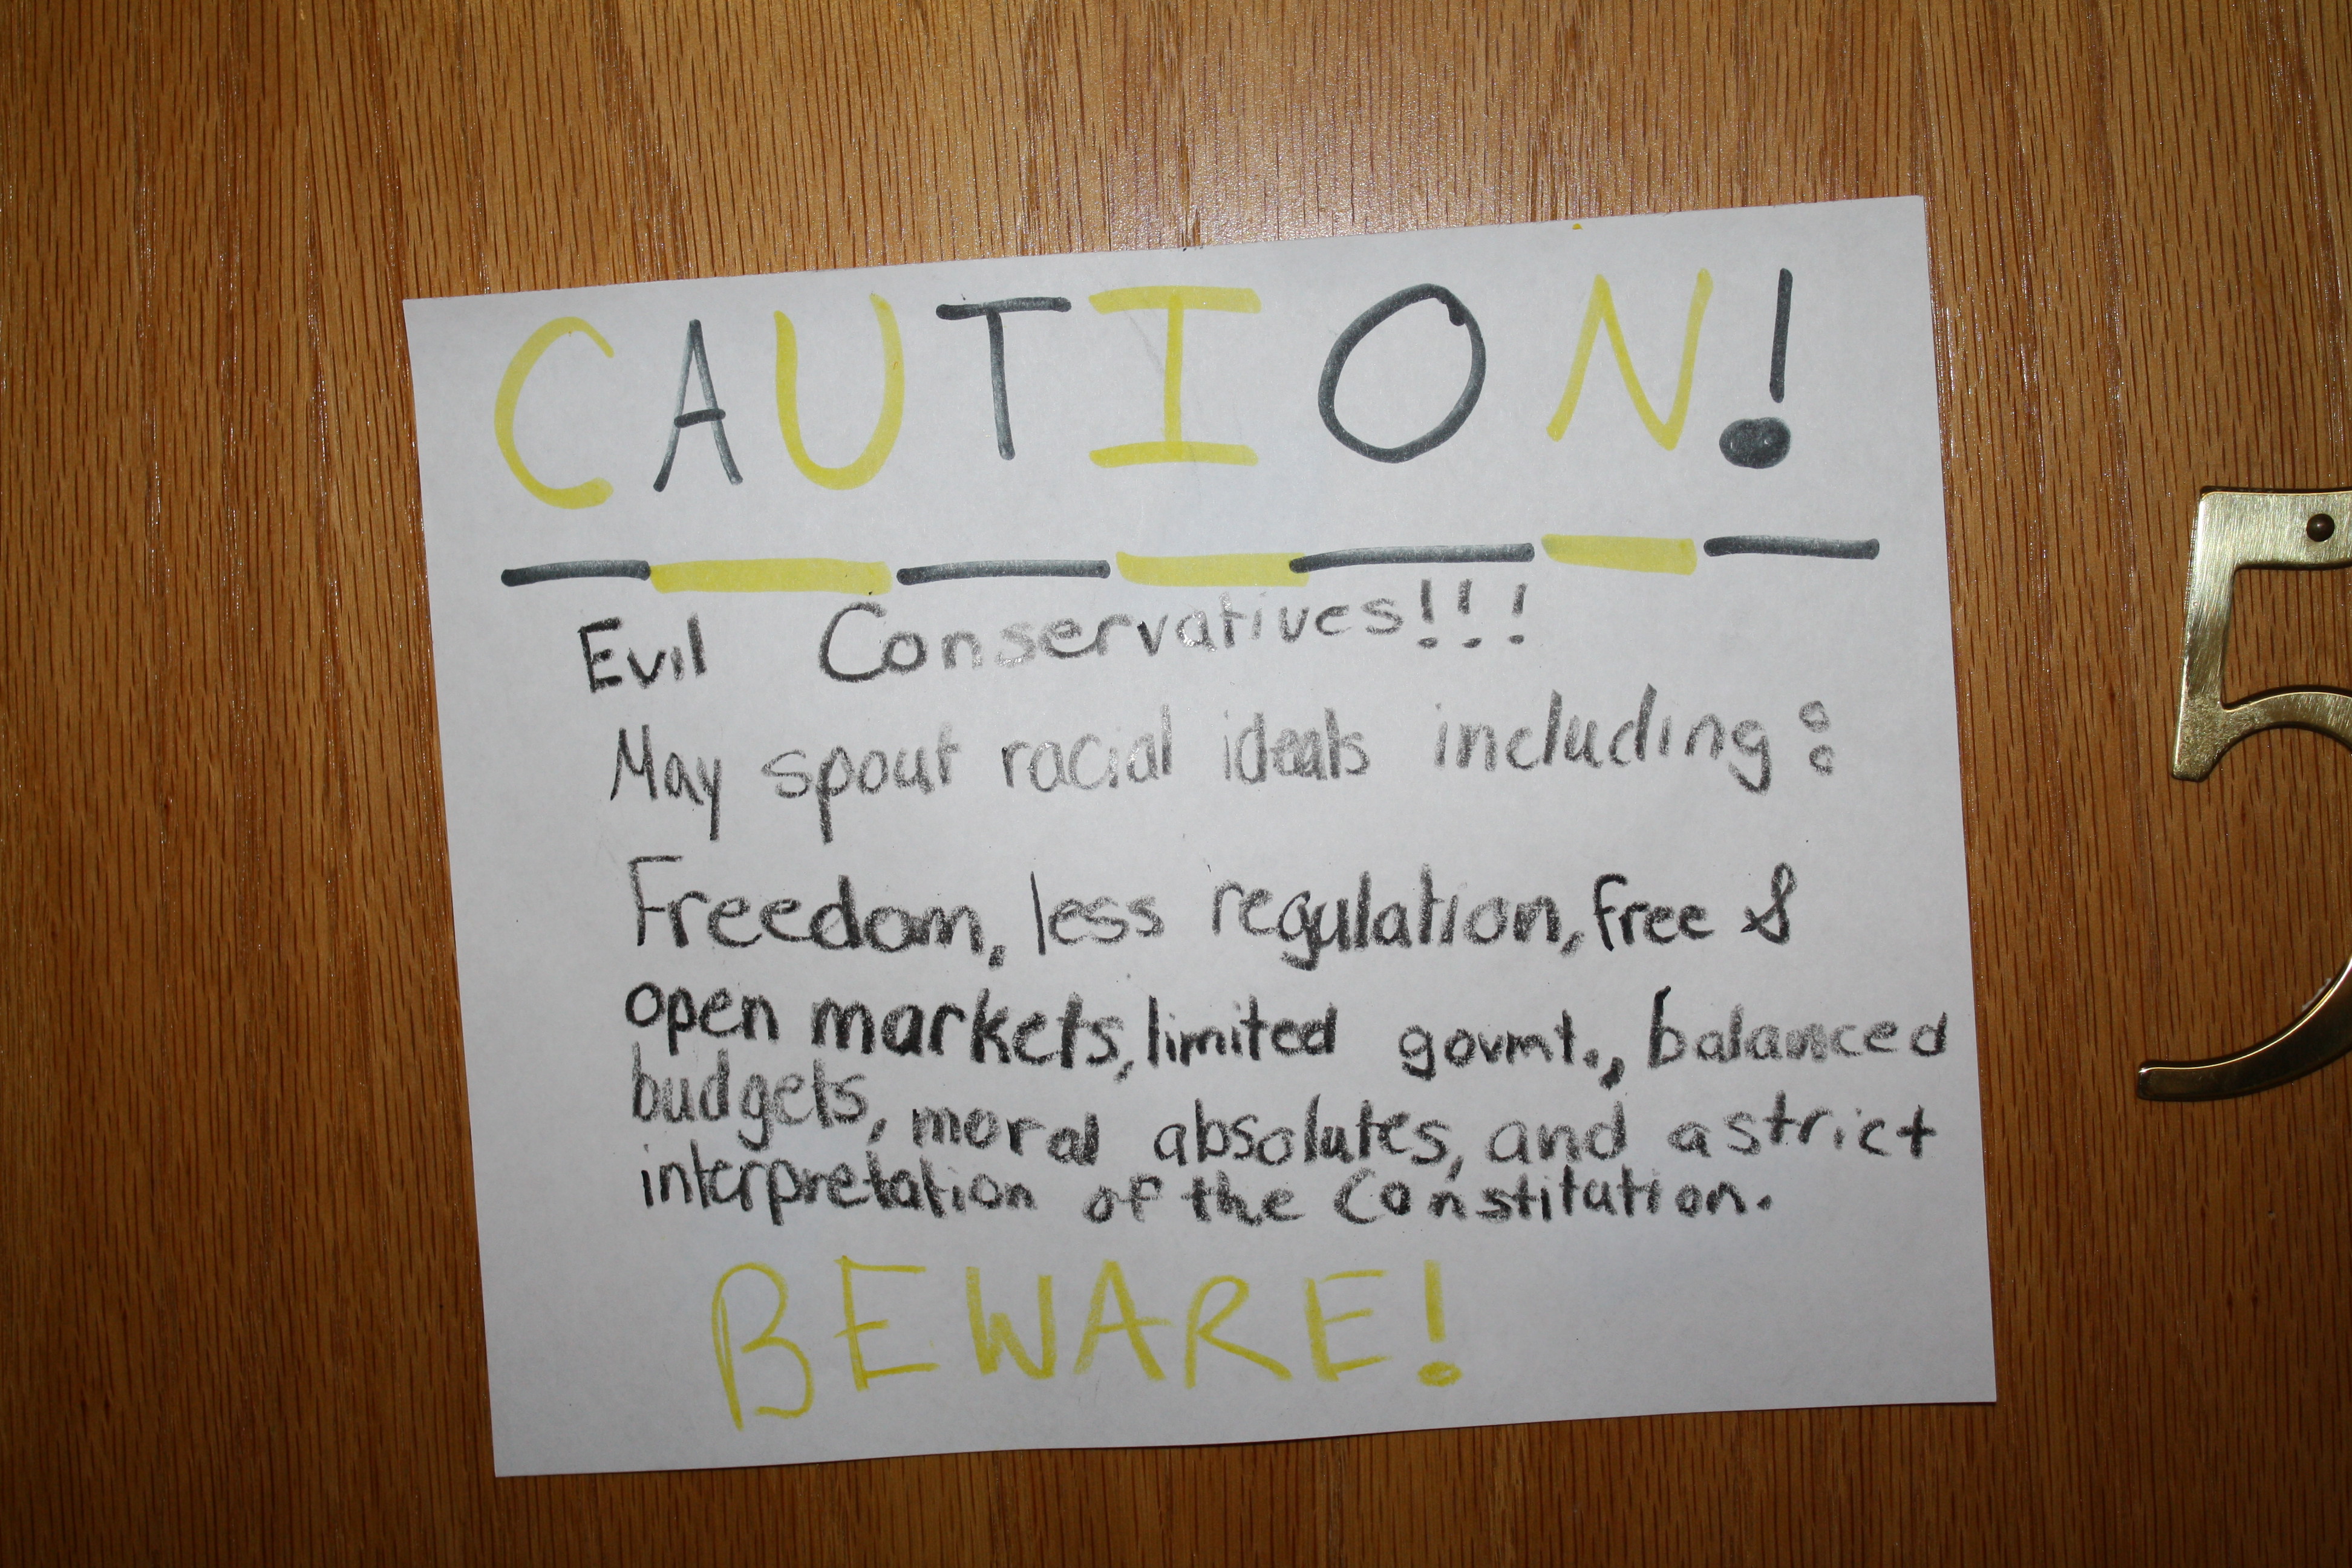 CAUTION!
Evil Conservatives!!!
May spout racial ideals including:
Freedom, less regulation, free &
open markets, limited govmt., balanced
budgets, moral absolutes, and a strict
interpretation of the Constitution.
BEWARE!
5